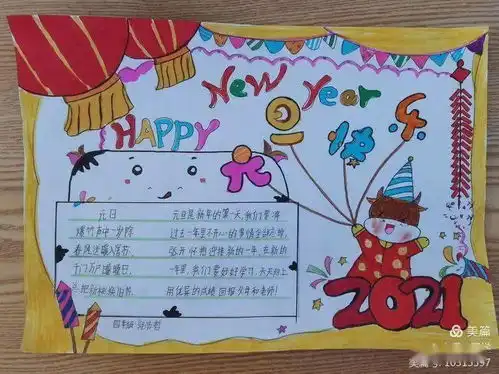 HAPPY
New Year
元旦快乐
元日
爆竹声中一岁除
春风送暖入屠苏
千门万户曈曈日
总把新桃换旧符
元旦是新年的第一天,我们要将
过去一年里不开心的事情全部忘掉
张开怀抱迎接新的一年,在新的
一年里,我们要好好学习,天天向上
用优异的成绩回报少年和老师!
2021
美篇